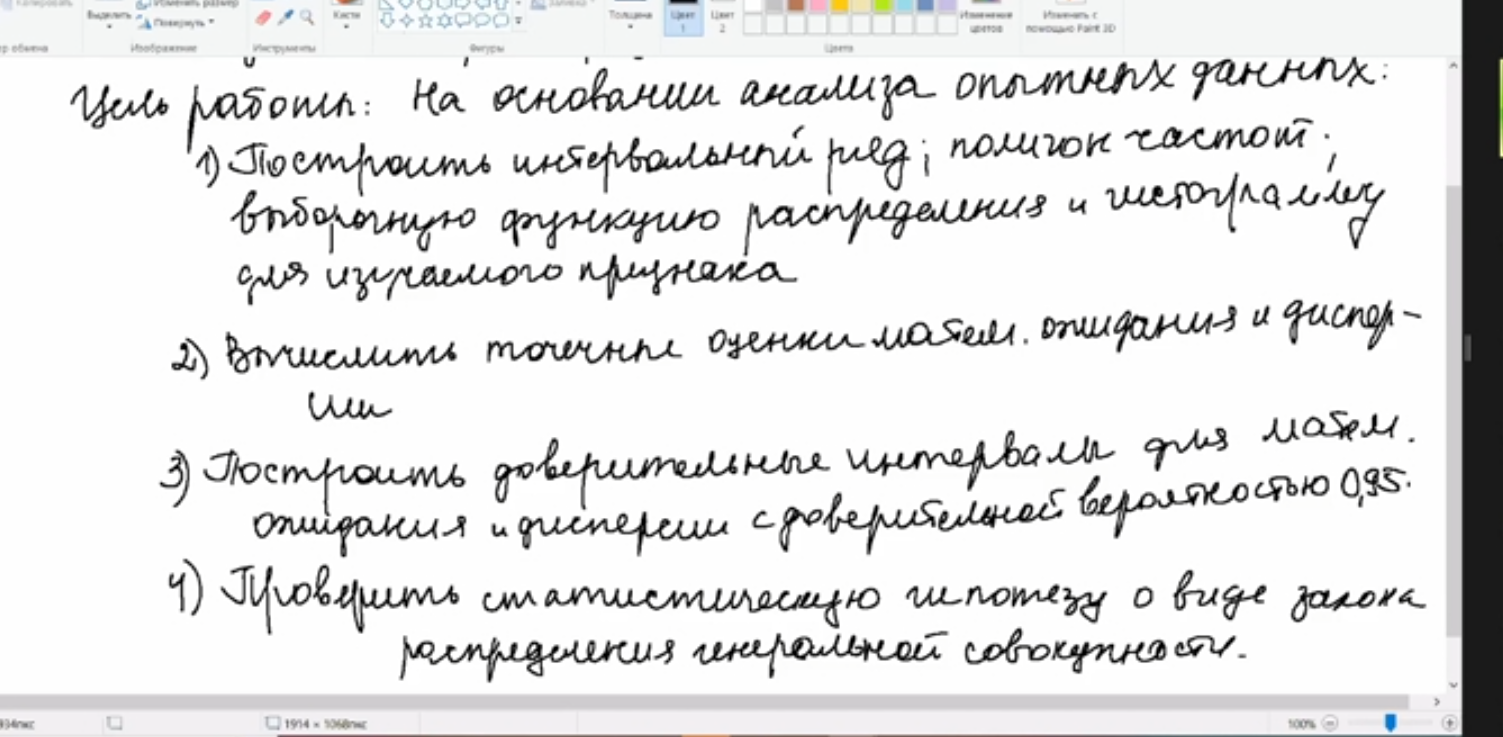 Копировать
Выделить
Изменить размер
Повернуть
Кисти
Заливка
Толщина
Цвет 1
Цвет 2
Изменение цветов
Изменить с помощью Paint 3D
р обмена
Изображение
Инструменты
Фигуры
Цвета
Цель работы: На основании анализа опытных данных:
1) Построить интервальный ряд; полигон частот;
выборочную функцию распределения и гистограмму
для изучаемого признака
2) Вычислить точечные оценки матем. ожидания и диспер-
сии
3) Построить доверительные интервалы для матем.
ожидания и дисперсии с доверительной вероятностью 0,95.
4) Проверить статистическую гипотезу о виде закона
распределения генеральной совокупности.
934пкс
1914 × 1068пкс
100%